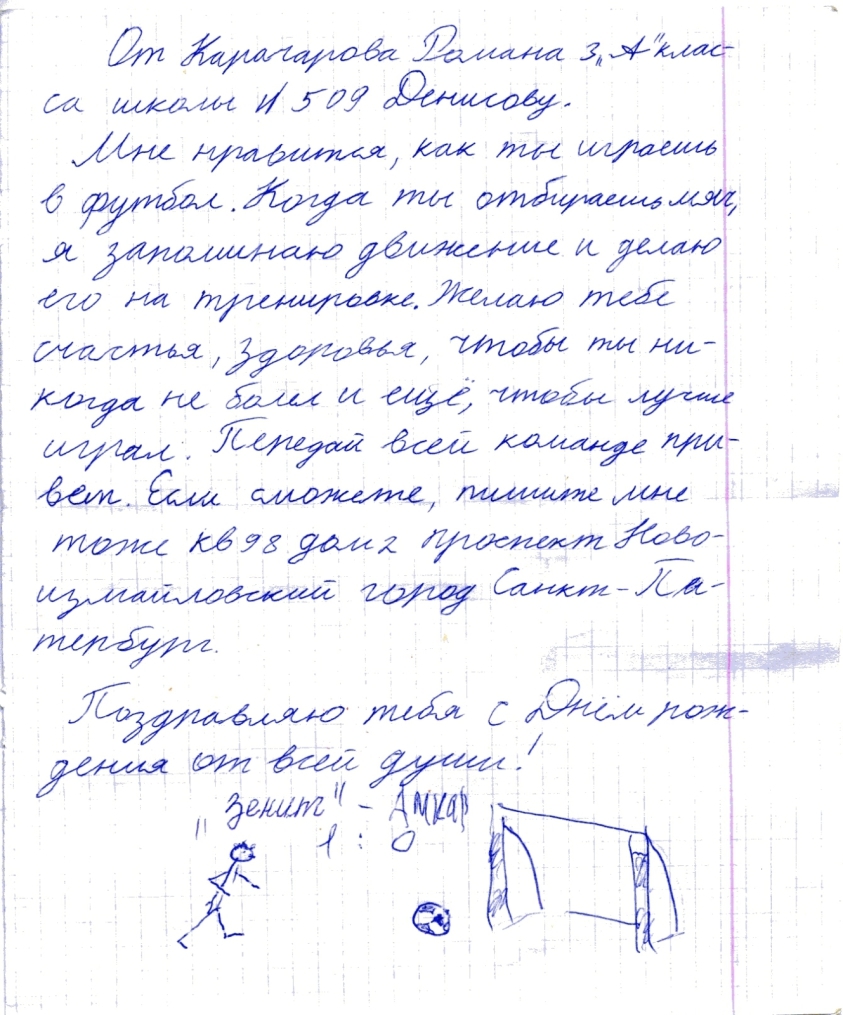 От Карачарова Романа 3„А" клас-
са школы N 509 Денисову.
Мне нравится, как ты играешь
в футбол. Когда ты отбираешь мяч,
я запоминаю движение и делаю
его на тренировке. Желаю тебе
счастья, здоровья, чтобы ты ни-
когда не болел и ещё, чтобы лучше
играл. Передай всей команде при-
вет. Если сможете, пишите мне
тоже кв 98 дом 2 проспект Ново-
измайловский город Санкт-Пе-
тербург.
Поздравляю тебя с Днём рож-
дения от всей души!
„Зенит" - Амкар
1 : 0